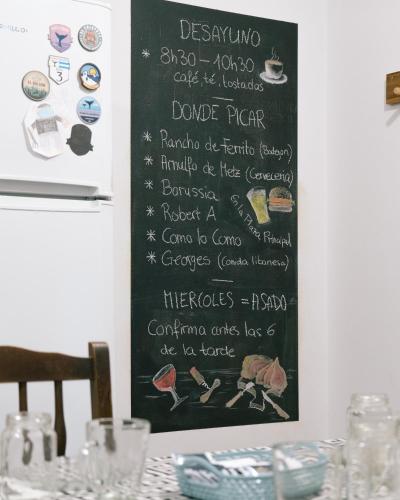 DESAYUNO
* 8h30 – 10h30
café, té, tostadas
DONDE PICAR
* Rancho de Ferrito (Bodegon)
* Arnulfo de Metz (Cerveceria)
* Borussia
* Robert A
* Como lo Como
* Georges (Comida libanesa)
En la Plaza Principal
MIERCOLES = ASADO
Confirma antes las 6
de la tarde
3